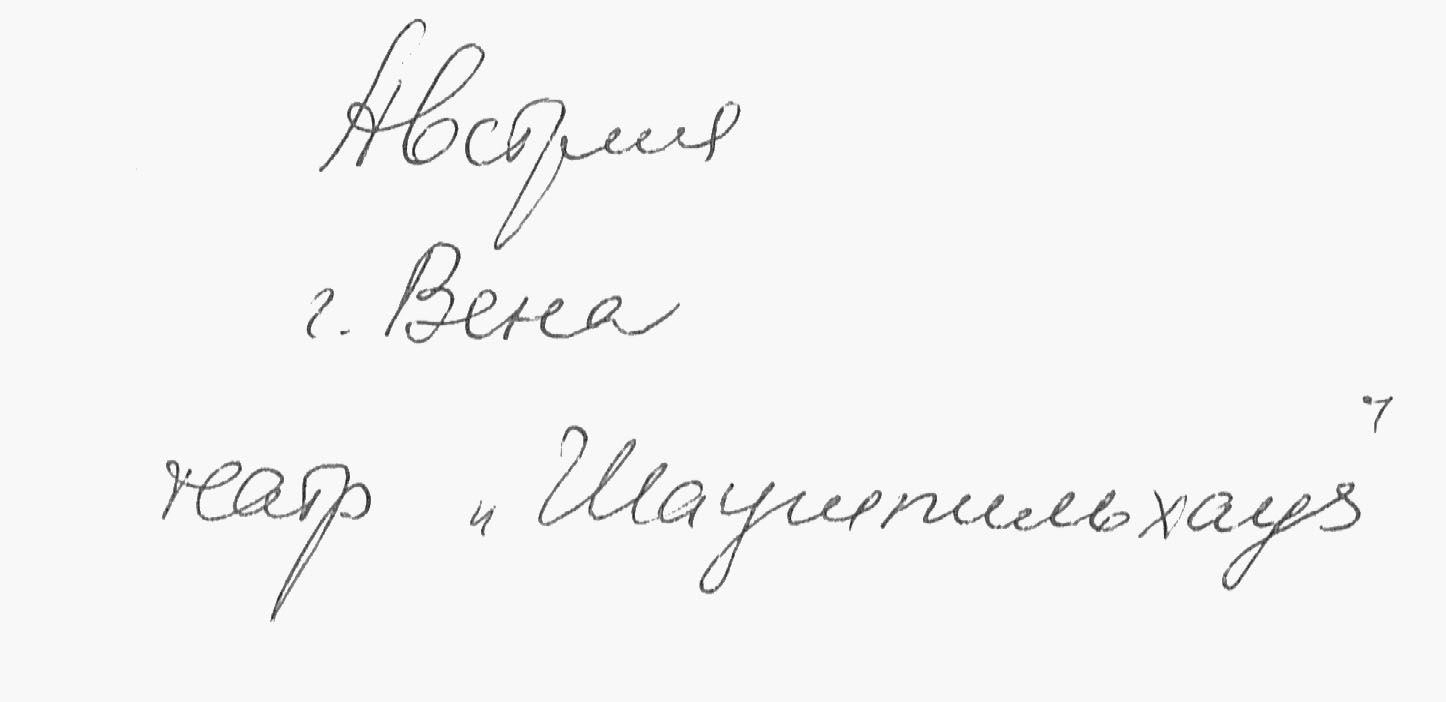 Австрия
г. Вена
театр „Шаушпильхауз"